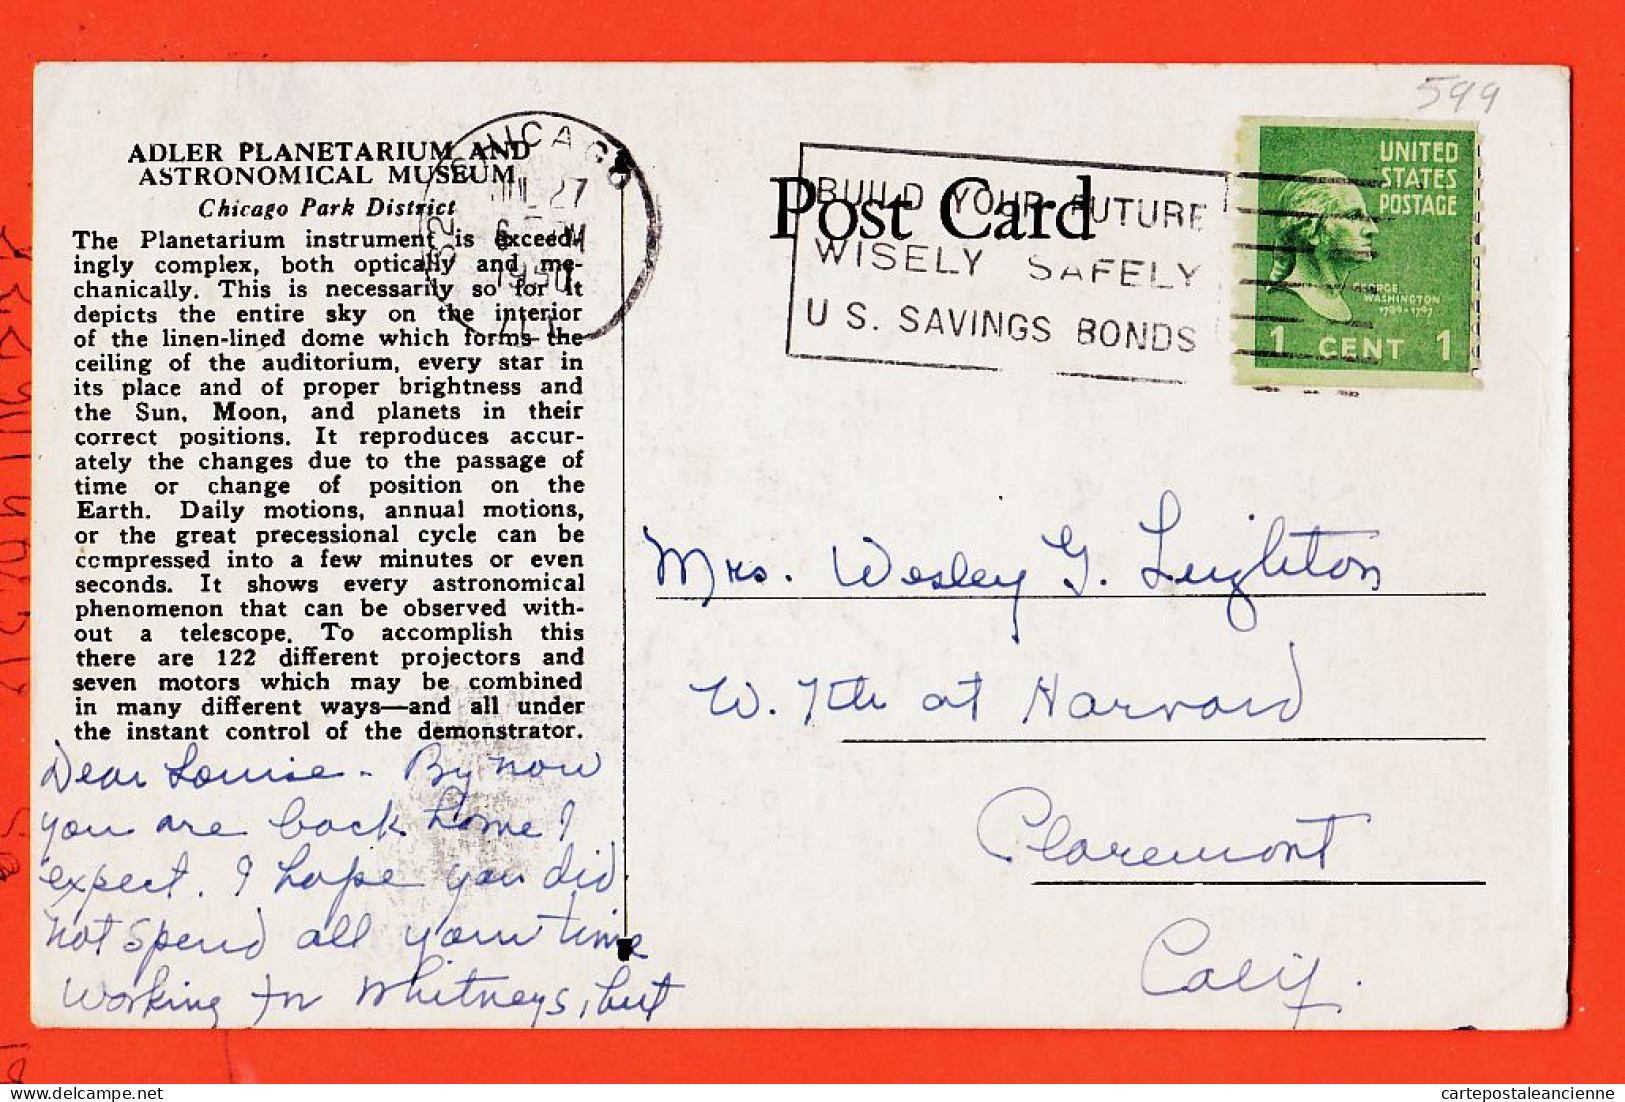 599
ADLER PLANETARIUM AND
ASTRONOMICAL MUSEUM
Chicago Park District
The Planetarium instrument is exceed-
ingly complex, both optically and me-
chanically. This is necessarily so for it
depicts the entire sky on the interior
of the linen-lined dome which forms the
ceiling of the auditorium, every star in
its place and of proper brightness and
the Sun, Moon, and planets in their
correct positions. It reproduces accur-
ately the changes due to the passage of
time or change of position on the
Earth. Daily motions, annual motions,
or the great precessional cycle can be
compressed into a few minutes or even
seconds. It shows every astronomical
phenomenon that can be observed with-
out a telescope. To accomplish this
there are 122 different projectors and
seven motors which may be combined
in many different ways—and all under
the instant control of the demonstrator.
Dear Louise - By now
you are back home I
expect. I hope you did
not spend all your time
working for Whitneys, but
CHICAGO
JUL 27
1950
ILL
Post Card
BUILD YOUR FUTURE
WISELY SAFELY
U S. SAVINGS BONDS
UNITED
STATES
POSTAGE
GEORGE
WASHINGTON
1789-1797
1 CENT 1
Mrs. Wesley G. Leighton
W. 7th at Harvard
Claremont
Calif.
cartepostaleancienne